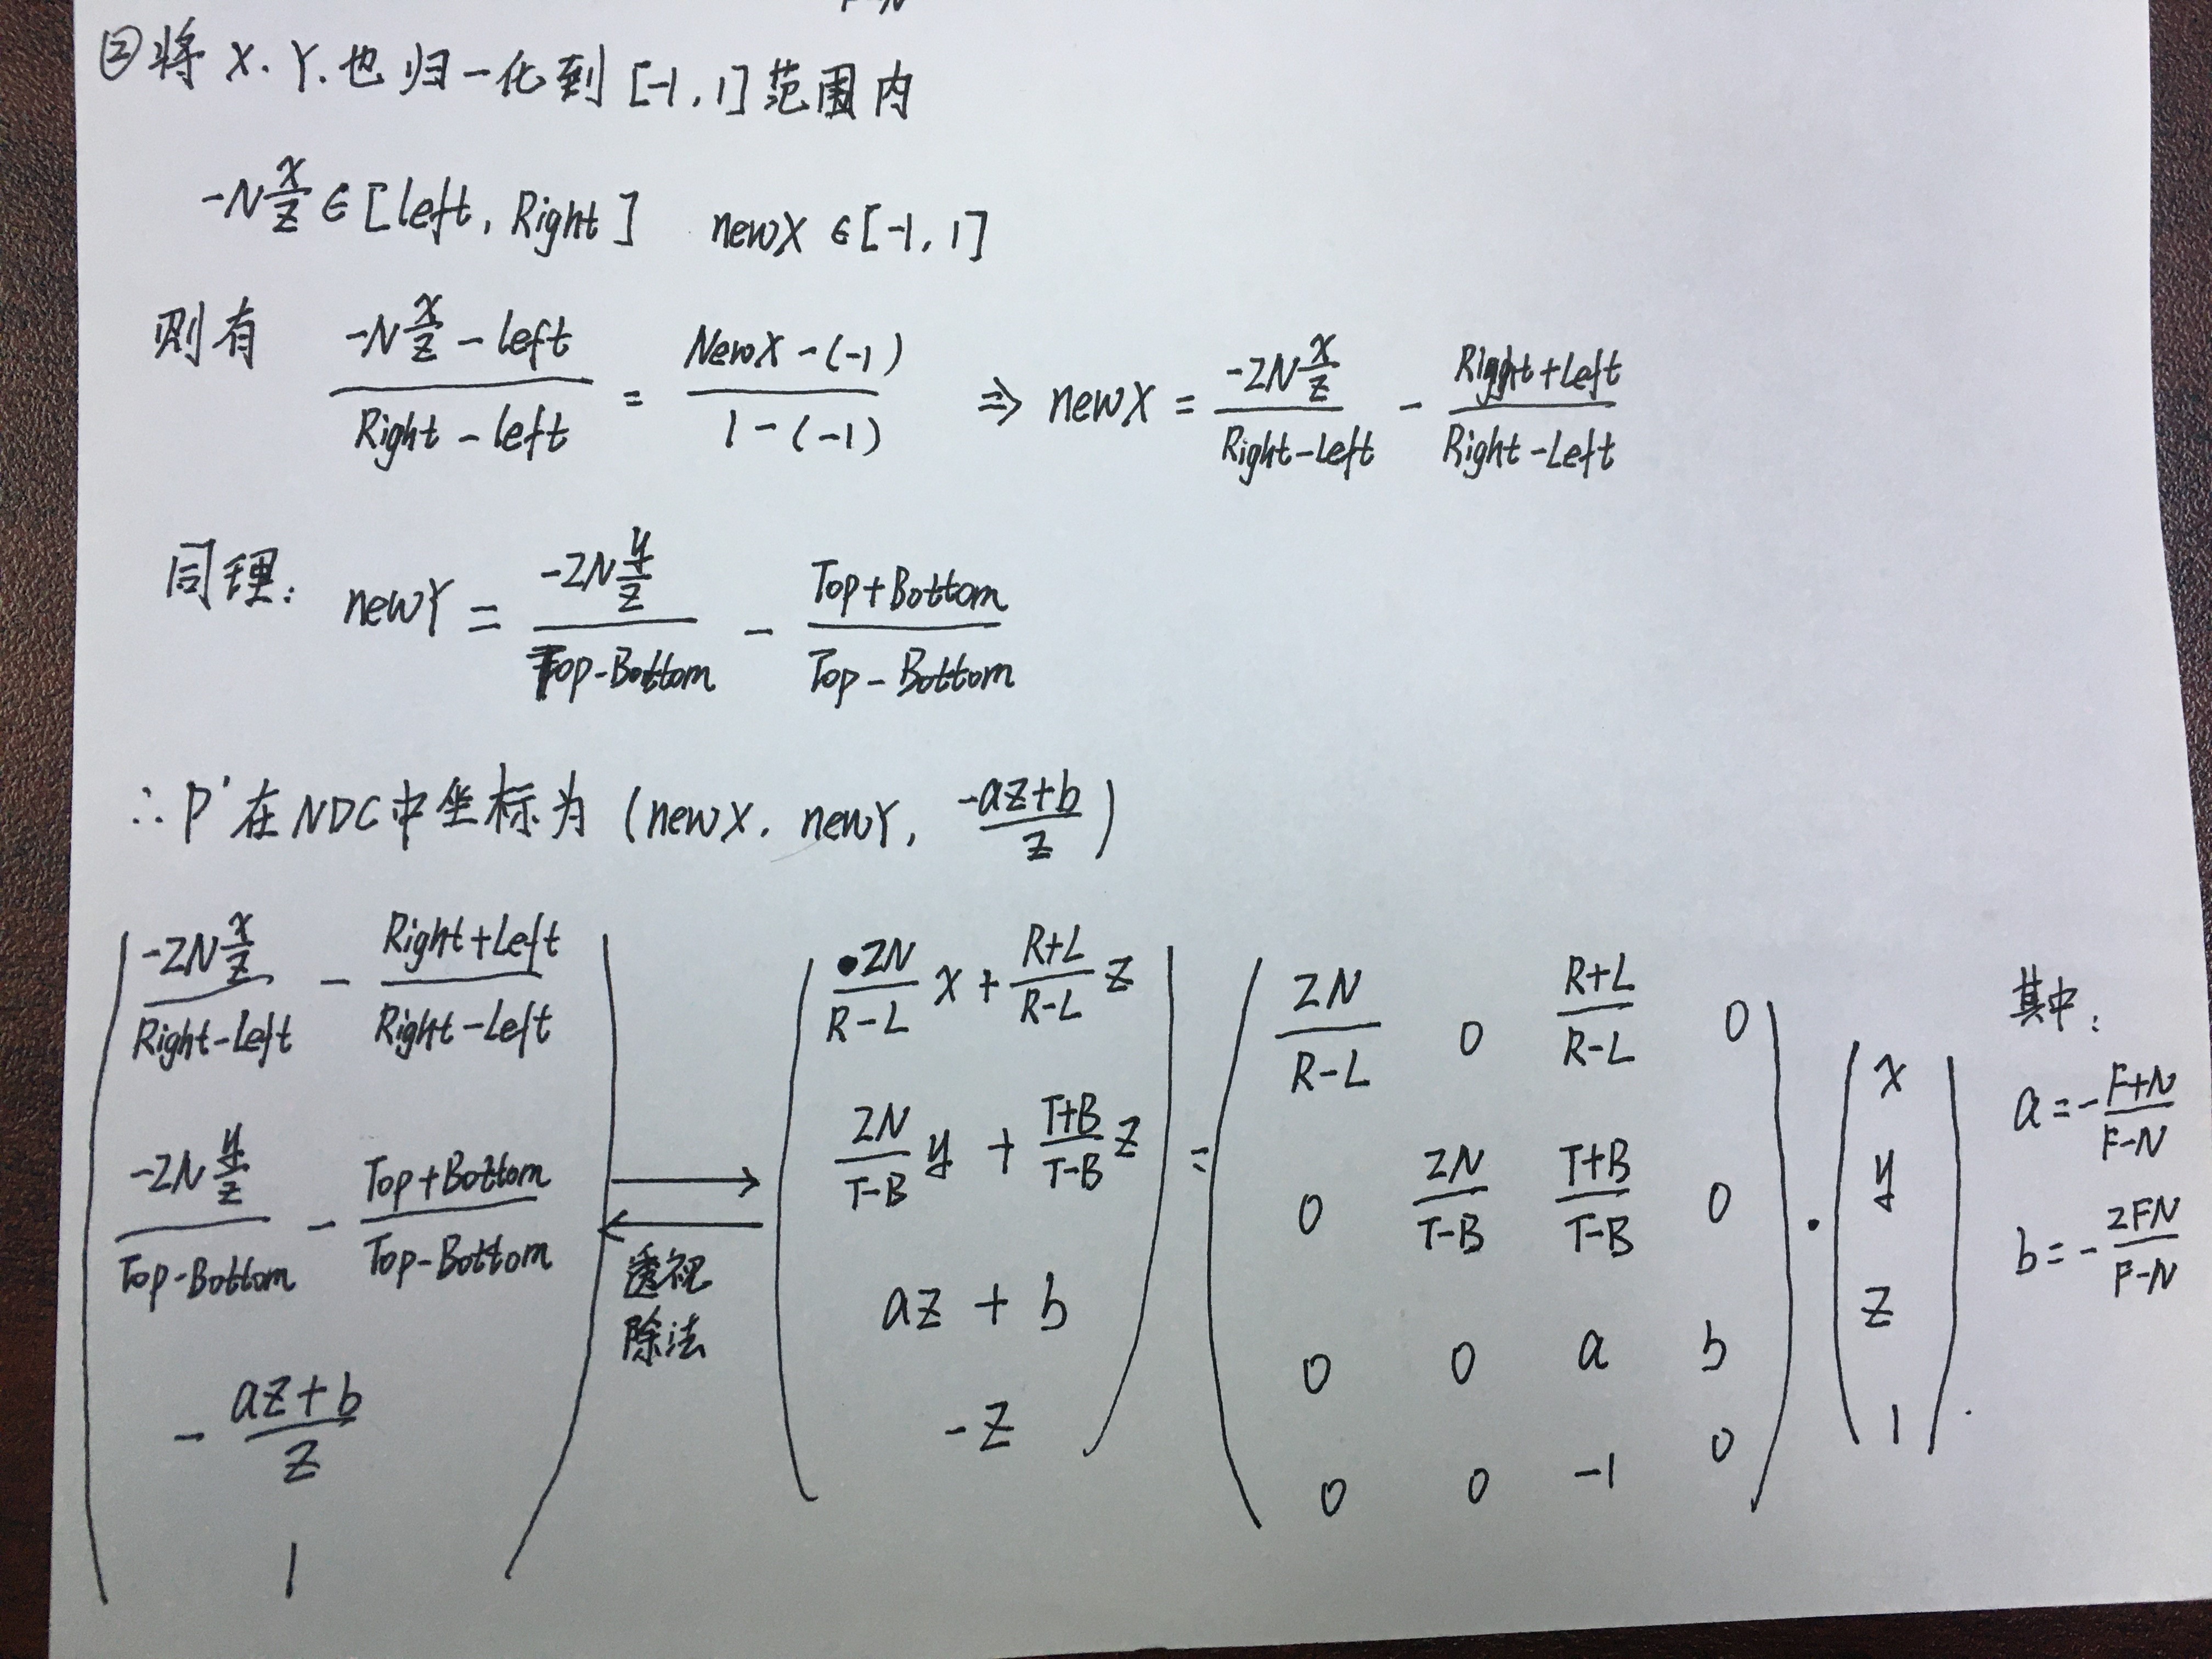 F-N
②将 X. Y. 也归一化到 [-1, 1] 范围内
-N x/z ∈ [left, Right] newX ∈ [-1, 1]
则有 (-N x/z - left)/(Right - left) = (NewX - (-1))/(1 - (-1)) ⇒ newX = (-2N x/z)/(Right-Left) - (Right+Left)/(Right-Left)
同理: newY = (-2N y/z)/(Top-Bottom) - (Top+Bottom)/(Top-Bottom)
∴ P' 在 NDC 中坐标为 (newX, newY, -(az+b)/z)
(-2N x/z)/(Right-Left) - (Right+Left)/(Right-Left)
(-2N y/z)/(Top-Bottom) - (Top+Bottom)/(Top-Bottom)
- (az+b)/z
1
透视
除法
2N/(R-L) x + (R+L)/(R-L) z
2N/(T-B) y + (T+B)/(T-B) z
az + b
-z
=
2N/(R-L) 0 (R+L)/(R-L) 0
0 2N/(T-B) (T+B)/(T-B) 0
0 0 a b
0 0 -1 0
·
x
y
z
1
其中:
a = -(F+N)/(F-N)
b = -2FN/(F-N)